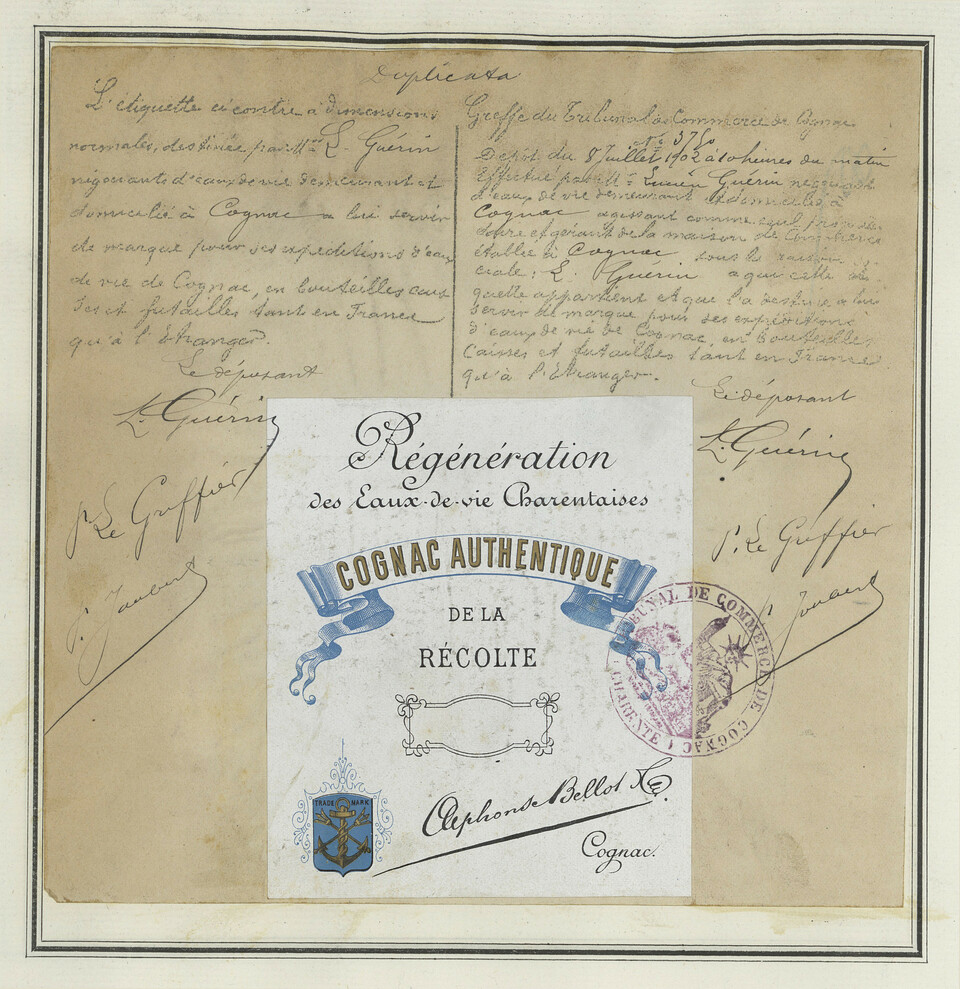 Duplicata
L'étiquette ci contre à dimensions
normales, destinée par Mr L. Guérin
négociant d'eaux de vie demeurant et
domicilié à Cognac a lui servir
de marque pour ses expéditions d'eaux
de vie de Cognac, en bouteilles cais
ses et futailles tant en France
qu'à l'Etranger.
Le déposant
L. Guérin
Pr Le Greffier
P. Joubert
Greffe du Tribunal de Commerce de Cognac
No 3750
Dépôt du 8 Juillet 1902 à 10 heures du matin
Effectué par Mr Lucien Guérin négociant
d'eaux de vie demeurant et domicilié à
Cognac agissant comme seul proprié
taire et gérant de la maison de Commerce
établie à Cognac sous la raison
ciale: L. Guérin a qui cette éti
quette appartient et qui l'a destine a lui
servir de marque pour ses expéditions
d'eaux de vie de Cognac, en bouteilles
Caisses et futailles tant en France
qu'à l'Etranger.
Le déposant
L. Guérin
Pr Le Greffier
P. Joubert
Régénération
des Eaux-de-vie Charentaises
COGNAC AUTHENTIQUE
DE LA
RÉCOLTE
TRADE MARK
Alphonse Bellot & Co
Cognac.
TRIBUNAL DE COMMERCE DE COGNAC
CHARENTE